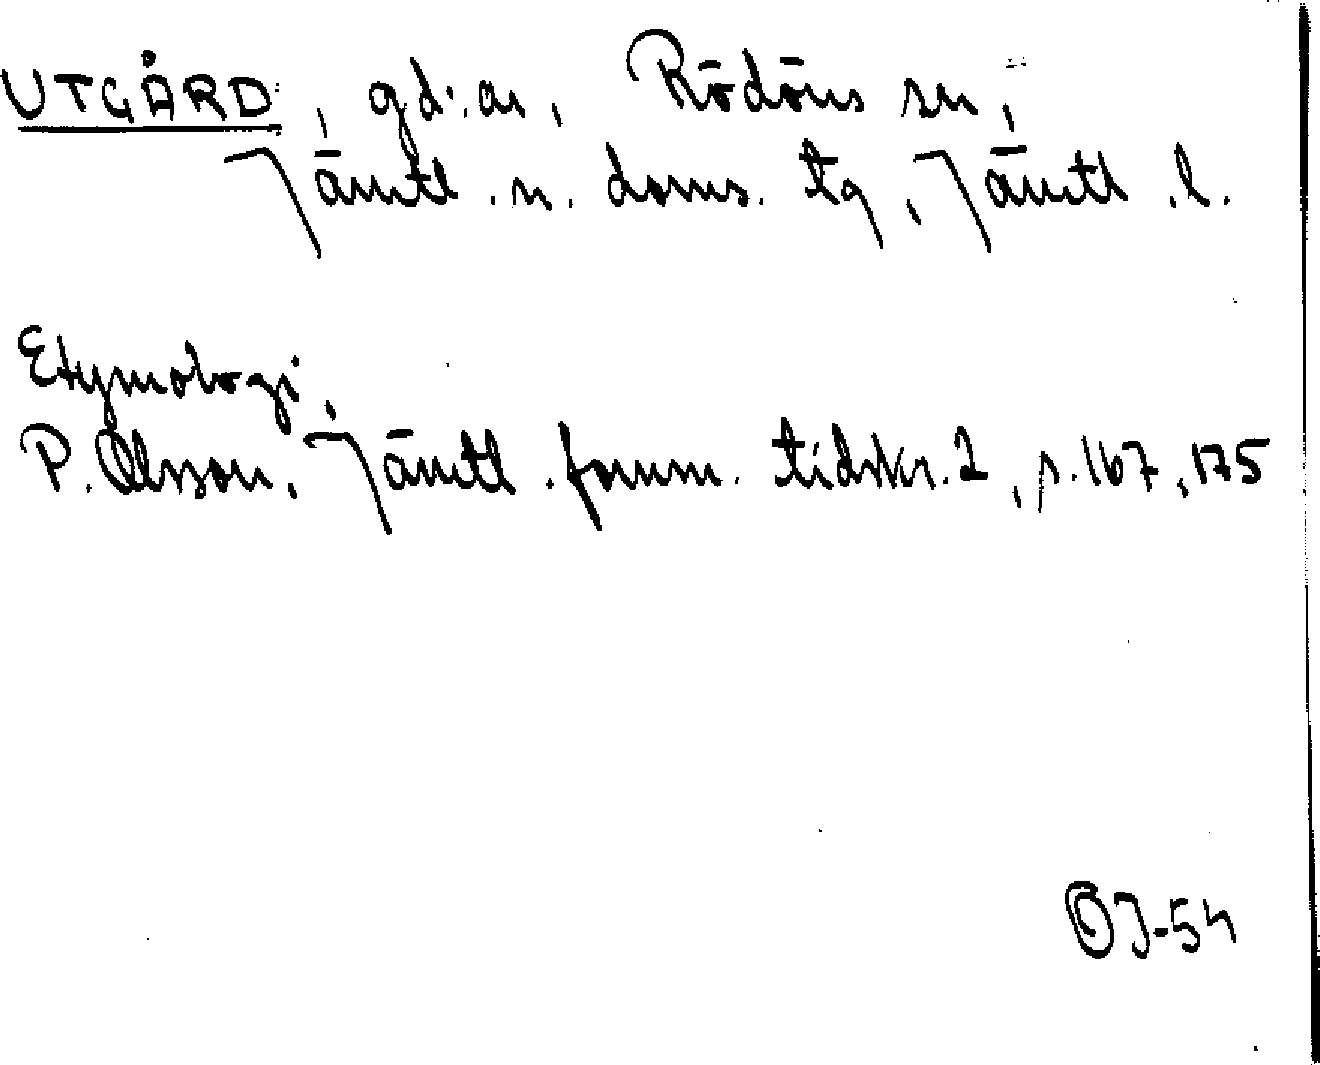 UTGÅRD, gd:ar, Rödöns sn,
Jämtl. n. doms. tg, Jämtl. l.
Etymologi,
P. Olsson, Jämtl. fornm. tidskr. 2, s. 167, 175
OJ-54